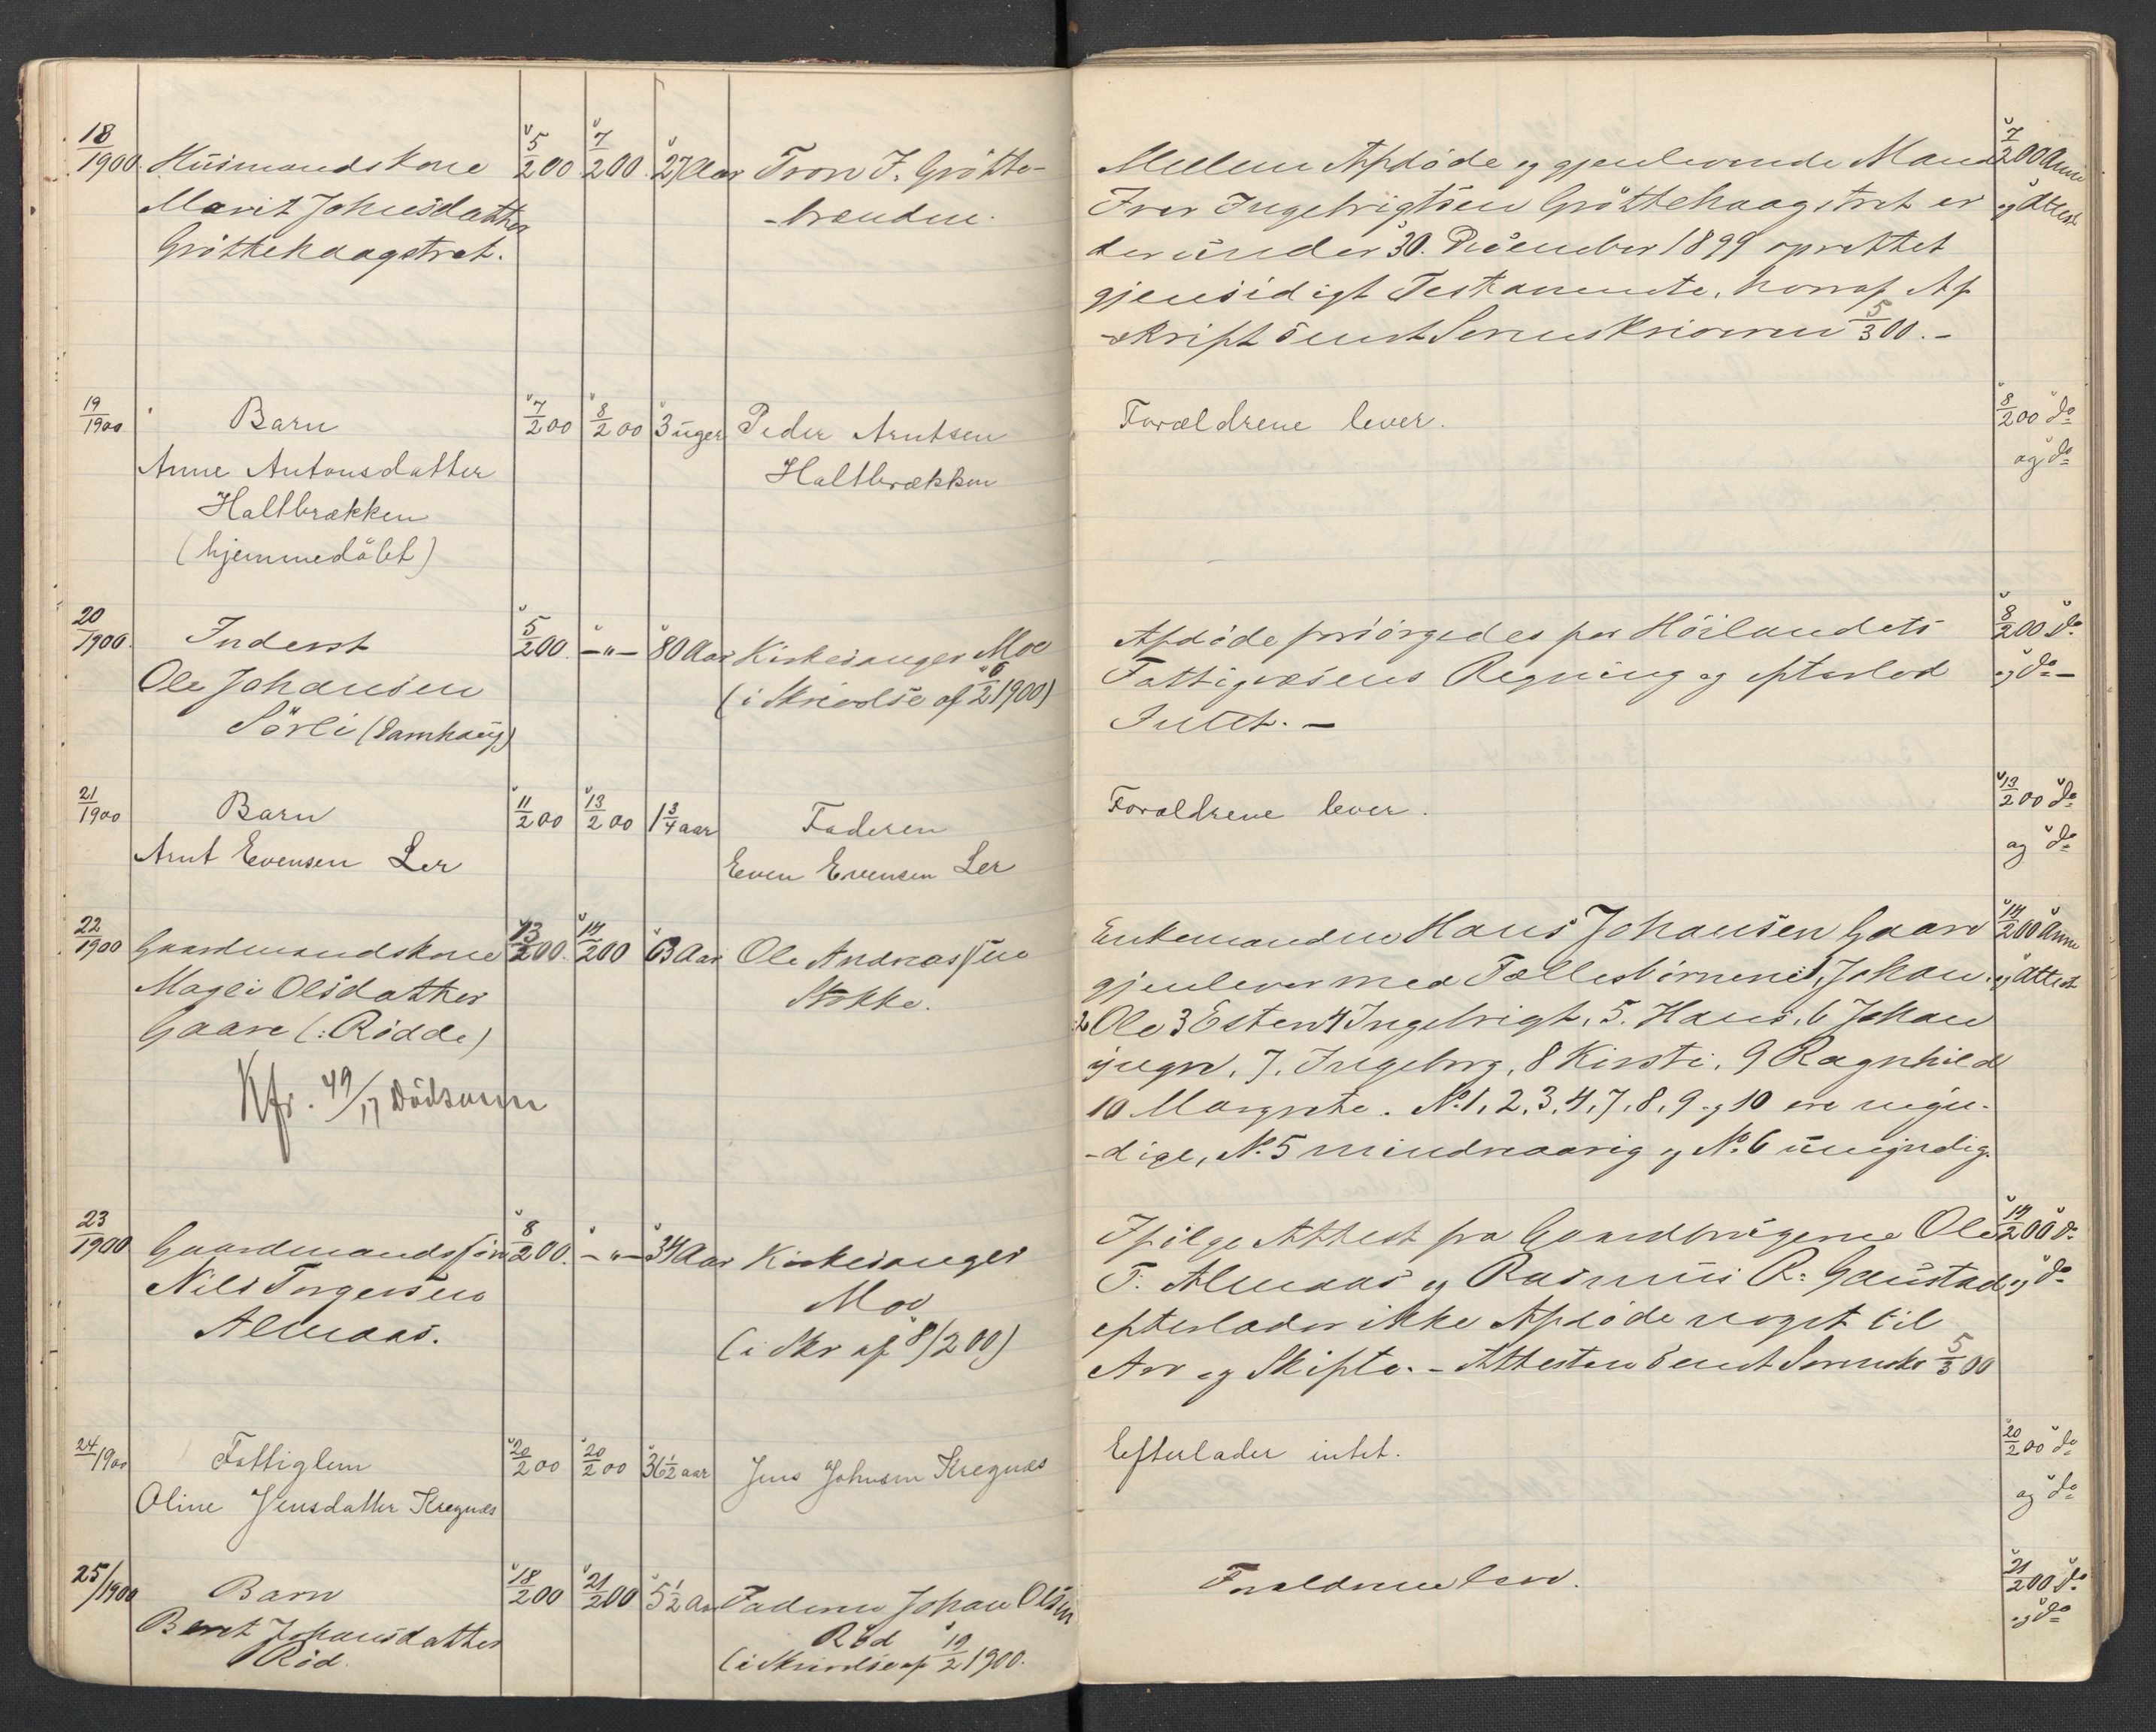 18/1900. Huusmandskone 5/2 00 7/2 00. 27 Aar Tron J. Grøtte-
Marit Johnsdatter brænden.
Grøttehaagstrøt.
Mellem Afdøde og gjenlevende Mand 7/2 00 Anm
Iver Ingebrigtsen Grøttehaagstrøt er og Attest
der under 30. December 1899 oprettet
gjensidigt Testamente, hvoraf Af
-skrift sendt Sorenskriveren 5/3 00. -
19/1900 Barn 7/2 00 8/2 00 3 uger Peder Arntsen
Anne Antonsdatter Haltbrækken
Haltbrækken
(hjemmedøbt)
Forældrene lever. 8/2 00 do
og do
20/1900. Inderst 5/2 00. -"- 80 Aar Kirkesanger Moe
Ole Johansen (i Skrivelse af 6/2 1900)
Sørli (Samhaug)
Afdøde forsørgedes for Hölandets 8/2 00 do
Fattigvæsens Regning og efterlod og do -
Intet. -
21/1900 Barn 11/2 00 13/2 00 1 3/4 aar Faderen
Arnt Evensen Ler Even Evensen Ler
Forældrene lever. 13/2 00 do
og do
22/1900 Gaardmandskone 13/2 00. 14/2 00 63 Aar Ole Andreassen
Magli Olsdatter Stokke.
Gaare (: Rødde)
Kfr. 49/17 Dødsanm
Enkemanden Hans Johansen Gaare 14/2 00 Anm
gjenlever med Fællesbørnene 1, Johan. og Attest
2 Ole 3 Esten 4 Ingebrigt, 5. Hans, 6 Johan
yngre, 7, Ingeborg, 8 Kirsti, 9 Ragnhild
10 Margrete. No. 1, 2, 3, 4, 7, 8, 9 og 10 ere myn-
-dige, No. 5 mindreaarig og No. 6 umyndig.
23/1900 Gaardmandssøn 8/2 00. -"- 34 Aar Kirkesanger
Nils Torgersen Moe
Almaas. (i Skr af 8/2 00)
Ifølge Attest fra Gaardbrugerne Ole 14/2 00 do
T. Almaas og Rasmus R. Gaustad og do
efterlader ikke Afdøde noget til
Arv og Skifte. - Attesten sendt Sorenskr 5/3 00
24/1900 Fattiglem 20/2 00 20/2 00 36 1/2 aar Jens Johnsen Kregnæs
Oline Jensdatter Kregnæs
Efterlader intet. 20/2 00 do
og do
25/1900 Barn 18/2 00 21/2 00 5 1/2 Aar Faderen Johan Olsen
Beret Johansdatter Rød
Rød. (i Skrivelse af 19/2 1900.
Forældrene lever. 21/2 00 do
og do